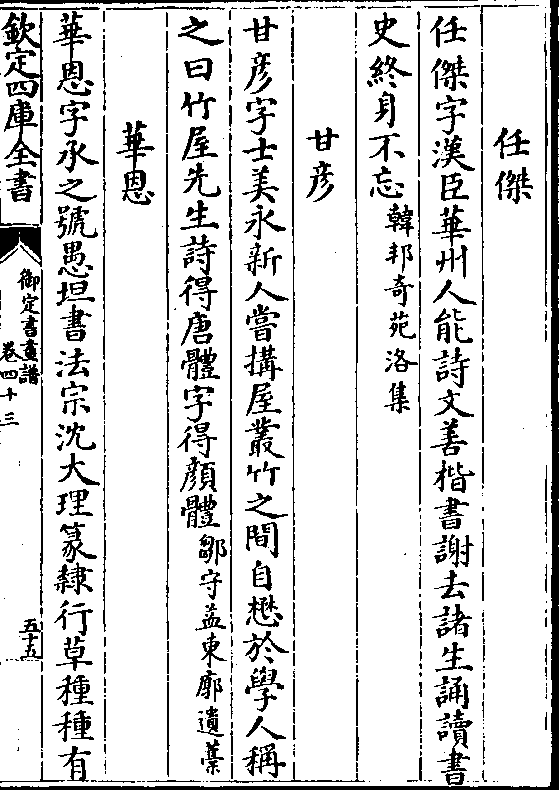 任傑
任傑字漢臣華州人能詩文善楷書謝去諸生誦讀書
史終身不忘韓邦奇苑洛集
甘彦
甘彦字士美永新人嘗搆屋叢竹之間自懋於學人稱
之曰竹屋先生詩得唐體字得顔體鄒守益東廓遺藁
華恩
華恩字承之號愚坦書法宗沈大理篆隸行草種種有
欽定四庫全書
御定書畫譜
卷四十三
五十五